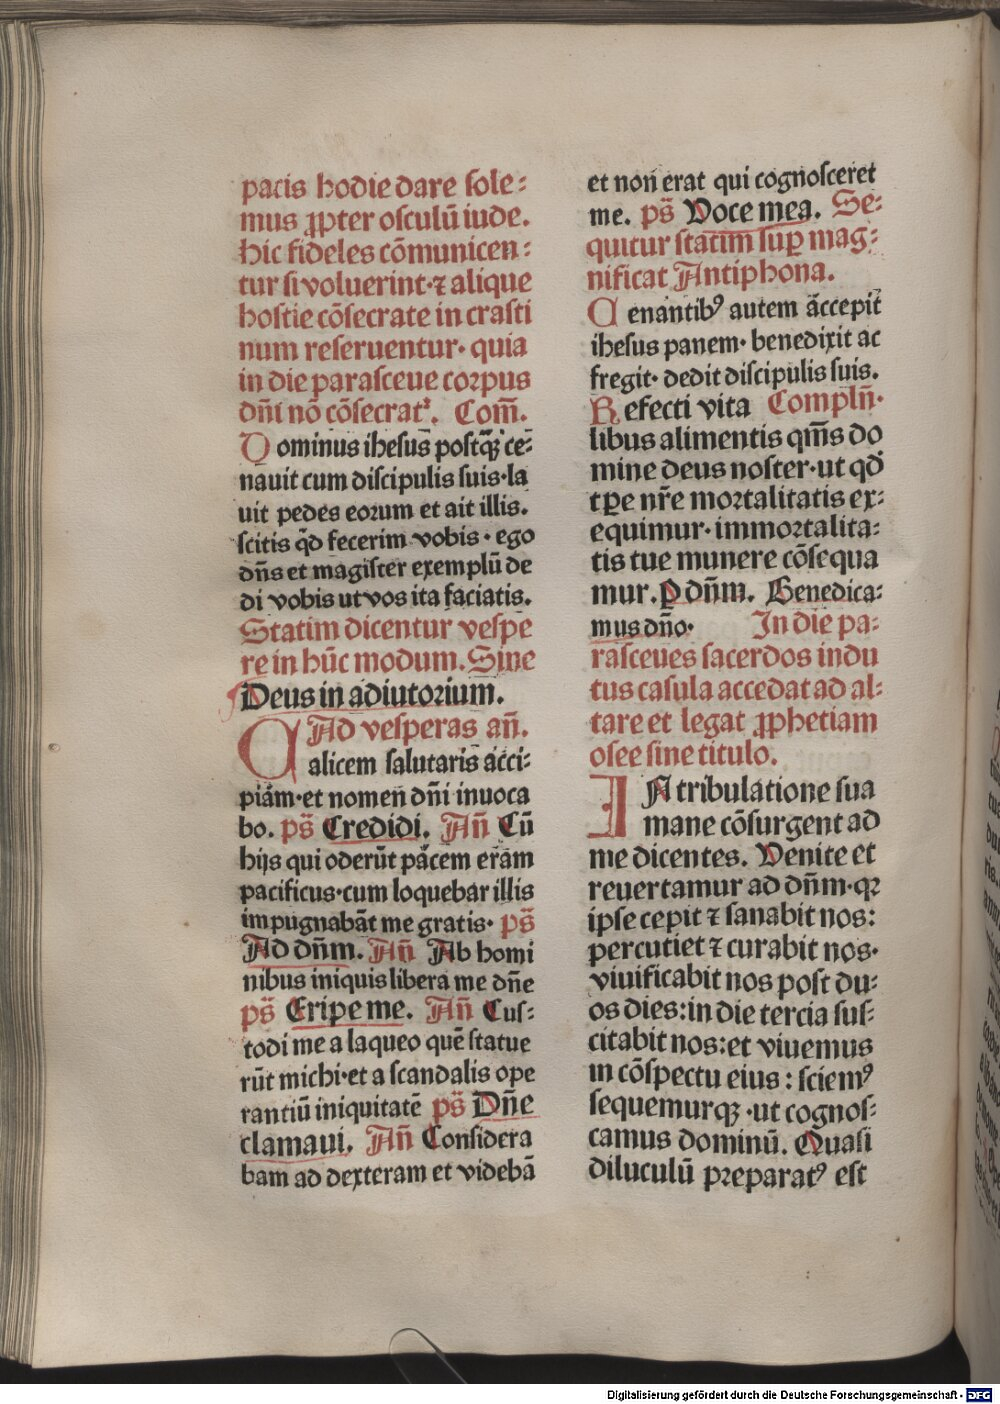 pacis hodie dare sole⸗
mus ꝓpter osculū iude.
hic fideles cōmunicen⸗
tur si voluerint·⁊ alique
hostie cōsecrate in crasti
num reseruentur· quia
in die parasceue corpus
dn̄i nō cōsecratᷣ. Com̄.
Dominus ihesus postqꝫ̄ ce⸗
nauit cum discipulis suis·la
uit pedes eorum et ait illis.
scitis qd̄ fecerim vobis· ego
dn̄s et magister exemplū de
di vobis ut vos ita faciatis.
Statim dicentur vespe
re in hūc modum. Sine
Deus in adiutorium.
Ad vesperas an̄.
Calicem salutaris acci⸗
piam·et nomen dn̄i inuoca
bo. ps̄ Credidi. An̄ Cū
hijs qui oderūt pacem eram
pacificus·cum loquebar illis
impugnabāt me gratis· ps̄
Ad dn̄m. An̄ Ab homi
nibus iniquis libera me dn̄e
ps̄ Eripe me. An̄ Cus⸗
todi me a laqueo quē statue
rūt michi·et a scandalis ope
rantiū iniquitatē ps̄ Dn̄e
clamaui. An̄ Considera
bam ad dexteram et videbā
et non erat qui cognosceret
me. ps̄ Voce mea. Se⸗
quitur statim suꝑ mag⸗
nificat Antiphona.
Cenantibꝰ autem accepit
ihesus panem· benedixit ac
fregit· dedit discipulis suis.
Refecti vita Compln̄·
libus alimentis qm̄s do
mine deus noster·ut qd̄
tꝑe nr̄e mortalitatis ex⸗
equimur· immortalita⸗
tis tue munere cōsequa
mur. Ꝑ dn̄m. Benedica⸗
mus dn̄o· In die pa⸗
rasceues sacerdos indu
tus casula accedat ad al⸗
tare et legat ꝓphetiam
osee sine titulo.
IN tribulatione sua
mane cōsurgent ad
me dicentes. Venite et
reuertamur ad dn̄m·qꝛ
ipse cepit ⁊ sanabit nos:
percutiet ⁊ curabit nos·
viuificabit nos post du⸗
os dies: in die tercia sus⸗
citabit nos: et viuemus
in cōspectu eius: sciemꝰ
sequemurqꝫ·ut cognos⸗
camus dominū. Quasi
diluculū preparatꝰ est
Digitalisierung gefördert durch die Deutsche Forschungsgemeinschaft - DFG